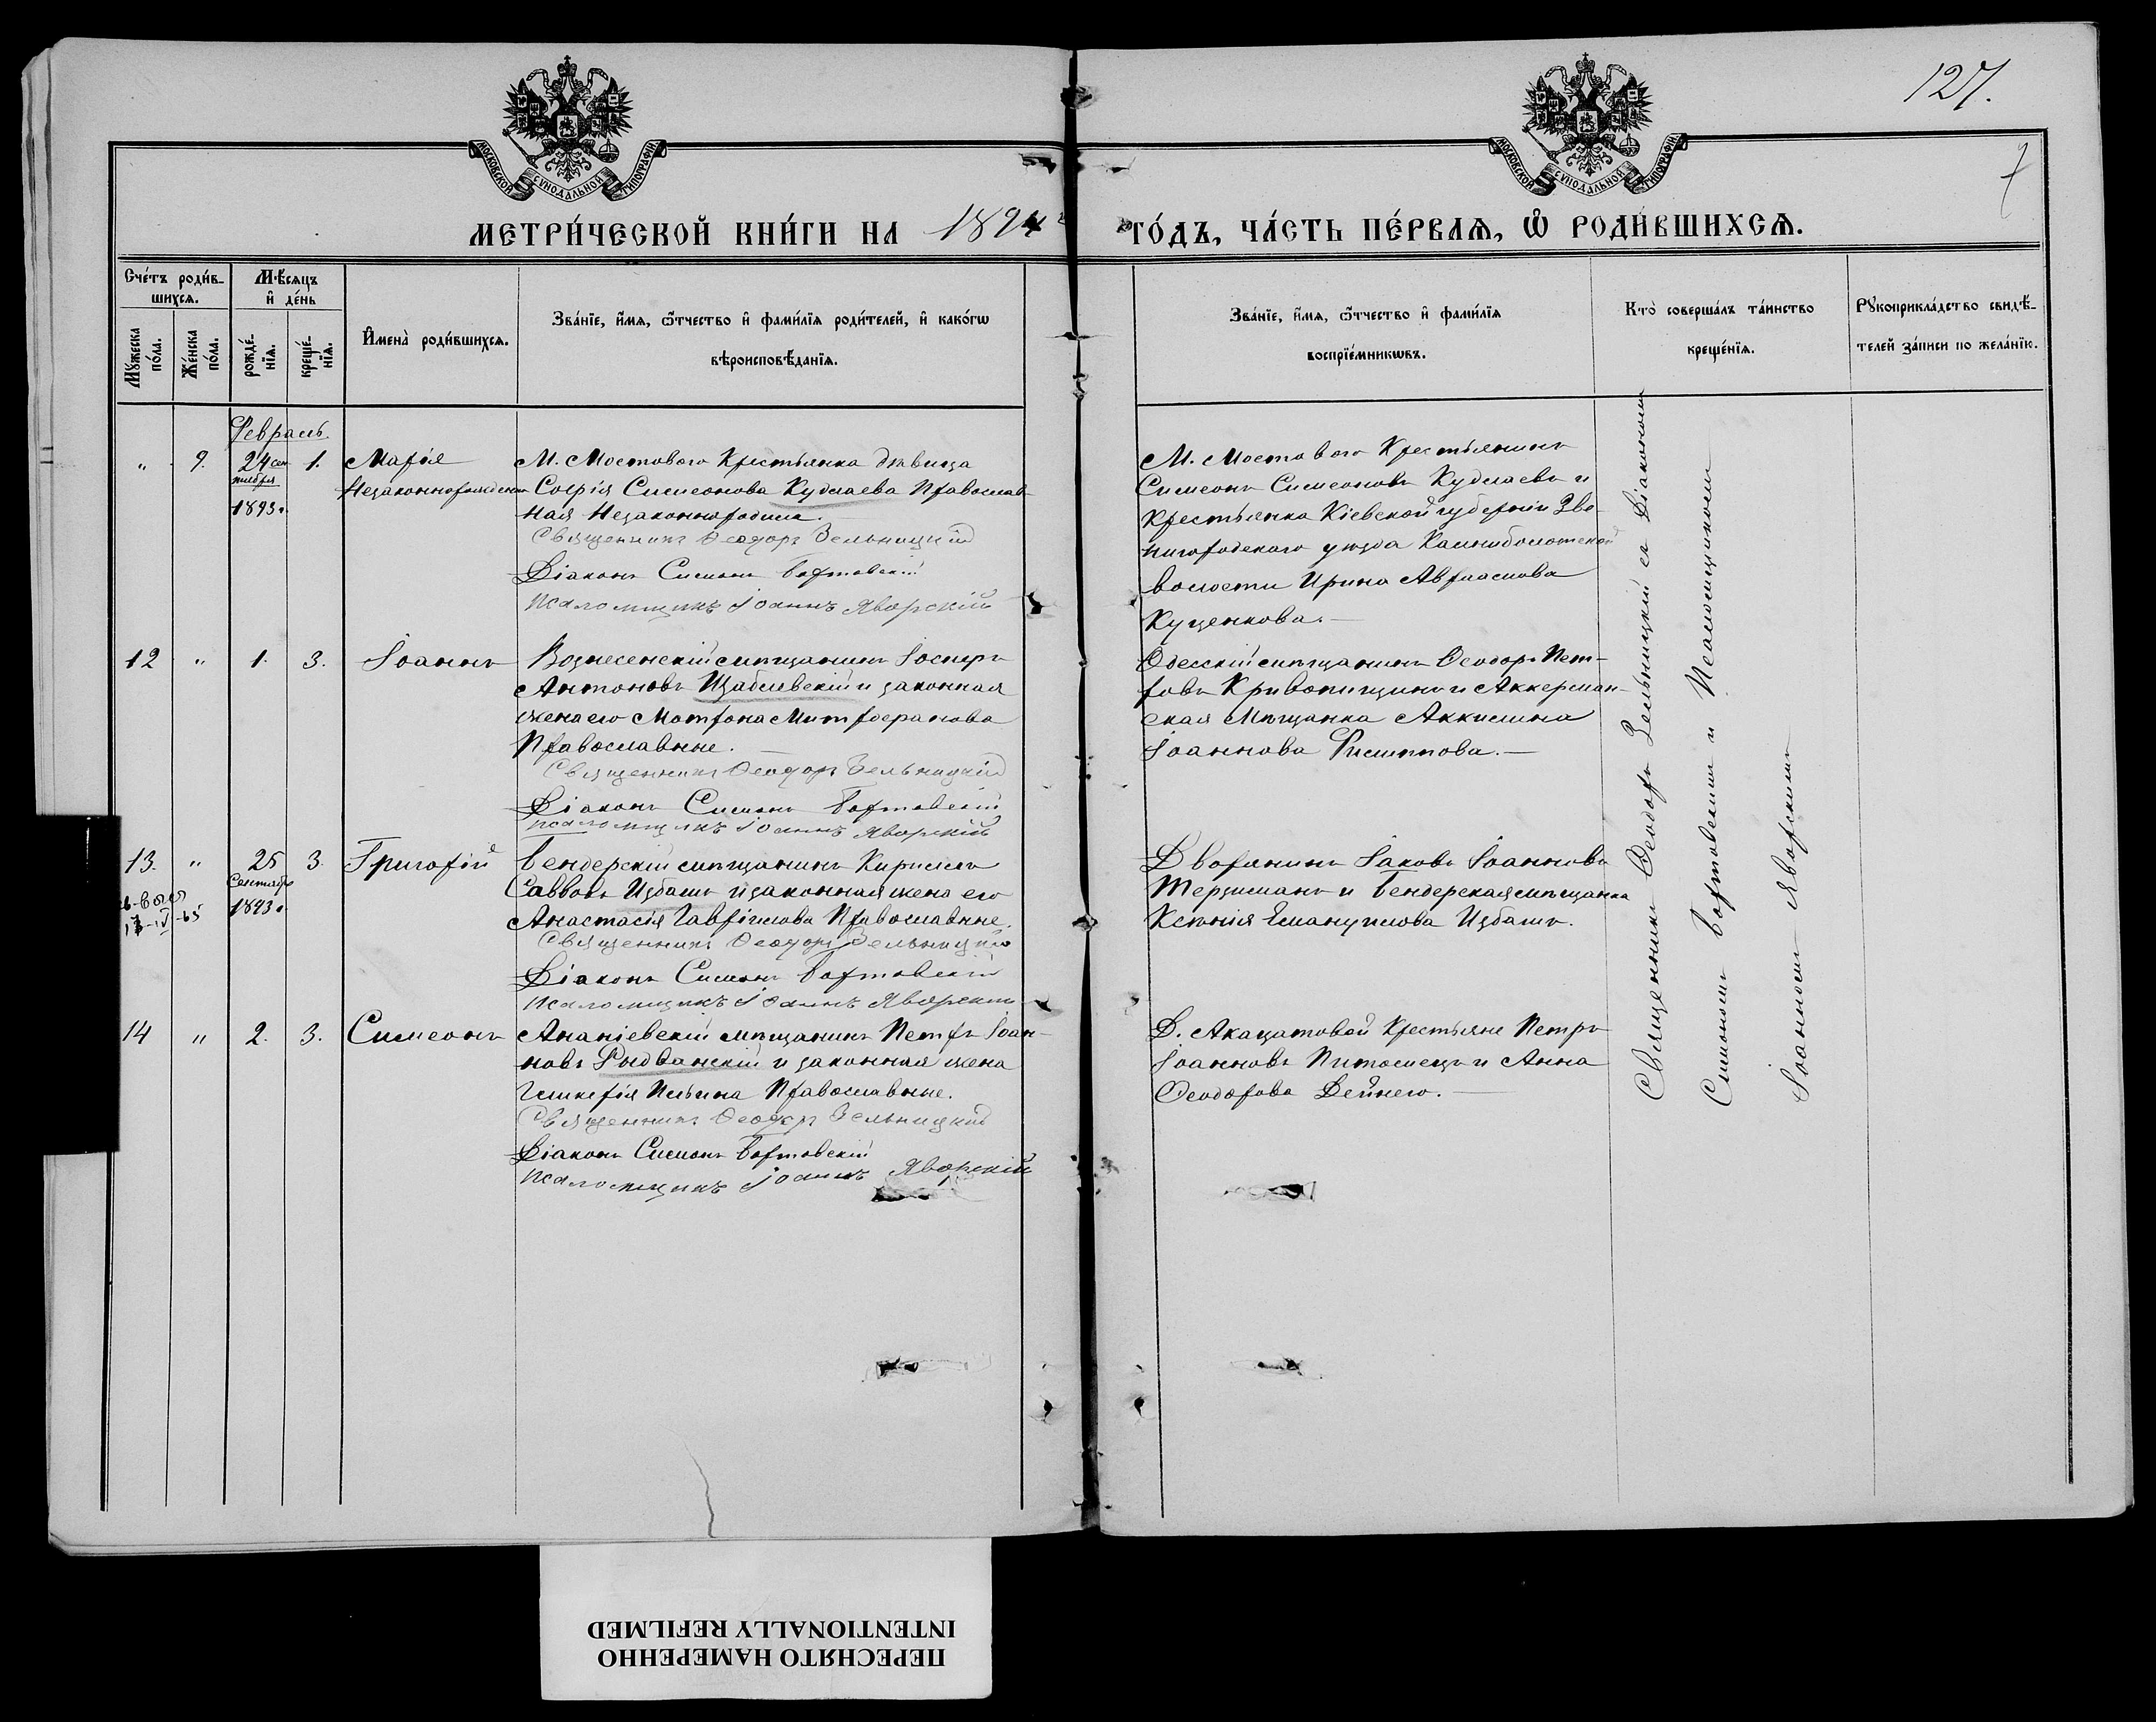 127.
7
МОСКОВСКОЙ СѴНОДАЛЬНОЙ ТИПОГРАФІИ
МОСКОВСКОЙ СѴНОДАЛЬНОЙ ТИПОГРАФІИ
МЕТРИ́ЧЕСКОЙ КНИ́ГИ НА 1894 ГО́ДЪ, ЧА́СТЬ ПЕ́РВАѦ, Ѡ РОДИ́ВШИХСѦ.
Сче́тъ роди́в-
шихсѧ.
Мꙋжеска по́ла.
Же́нска по́ла.
Мѣ́сѧцъ
и҆ де́нь
рожде́-
нїѧ.
креще́-
нїѧ.
И҆мена̀ роди́вшихсѧ.
Зва́нїе, и҆́мѧ, ѻ҆́тчество и҆ фами́лїѧ роди́телей, и҆ како́гѡ
вѣроисповѣ́данїѧ.
Зва́нїе, и҆́мѧ, ѻ҆́тчество и҆ фами́лїѧ
воспрїе́мникѡвъ.
Кто̀ соверша́лъ та́инство
креще́нїѧ.
Рꙋкоприкла́дство свидѣ́-
телей за́писи по жела́нїю.
Февраль.
" 9. 24 сен
тября
1893 г. 1. Марія
Незаконнорожденн
М. Мостового Крестьянка дѣвица
Софія Симеонова Кудлаева Православ
ная Незаконно родила.
Священникъ Ѳеодоръ Зельницкій
Діаконъ Симонъ Бортовскій
Псаломщикъ Іоаннъ Яворскій
М. Мостового Крестьянинъ
Симеонъ Симеоновъ Кудлаевъ и
Крестьянка Кіевской губерніи Зве-
нигородскаго уѣзда
волости Ирина
Куценкова.
12 " 1. 3. Іоаннъ
Вознесенскій мѣщанинъ Іосифъ
Антоновъ Щаблевскій и законная
жена его Матрона Митрофанова
Православные.
Священникъ Ѳеодоръ Зельницкій
Діаконъ Симонъ Бортовскій
Псаломщикъ Іоаннъ Яворскій
Одесскій мѣщанинъ Ѳеодоръ Пет-
ровъ и Аккерман-
ская Мѣщанка Аккилина
Іоаннова Филиппова.
13. " 25
Сентября
1893 г. 3. Григорій
Бендерскій мѣщанинъ Кириллъ
Саввовъ Избашъ и законная жена его
Анастасія Гавріилова Православные.
Священникъ Ѳеодоръ Зельницкій
Діаконъ Симонъ Бортовскій
Псаломщикъ Іоаннъ Яворскій
Дворянинъ Іаковъ Іоанновъ
Терзиманъ и Бендерская мѣщанка
Ксенія Емануилова Избашъ.
14 " 2. 3. Симеонъ
Ананіевскій мѣщанинъ Петръ Іоан-
новъ Рыдванскій и законная жена
Гликерія Ильина Православные.
Священникъ Ѳеодоръ Зельницкій
Діаконъ Симонъ Бортовскій
Псаломщикъ Іоаннъ Яворскій
Д. Акацатовой Крестьяне Петръ
Іоанновъ и Анна
Ѳеодорова
Священникъ Ѳеодоръ Зельницкій съ Діакономъ
Симономъ Бортовскимъ и Псаломщикомъ
Іоанномъ Яворскимъ
ПЕРЕСНЯТО НАМЕРЕННО
INTENTIONALLY REFILMED